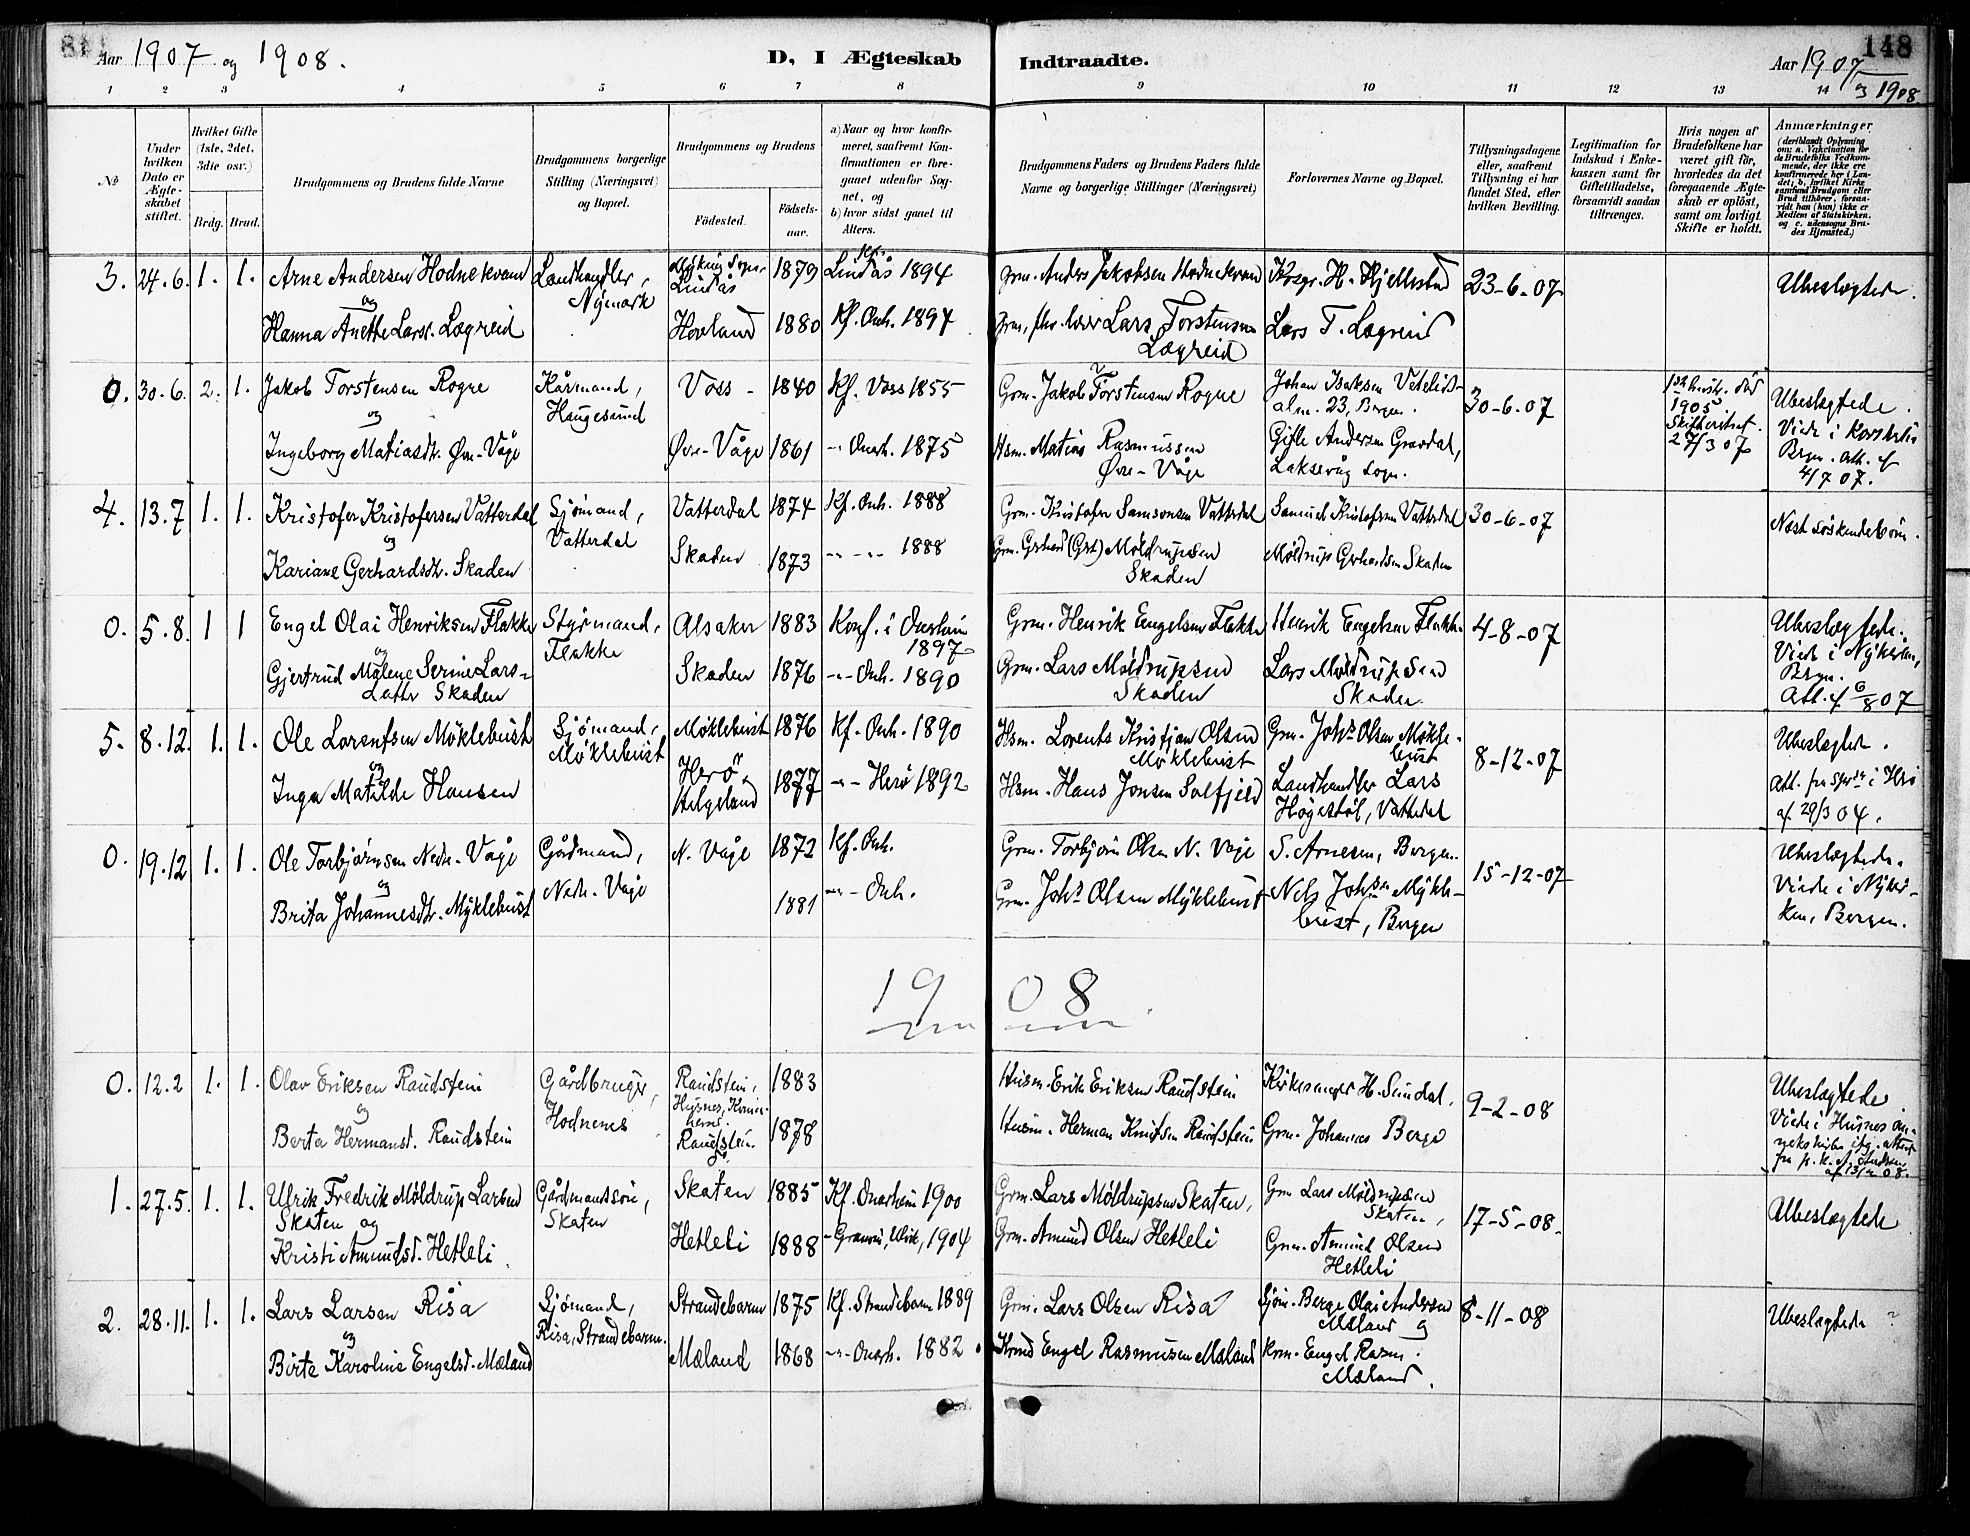 Aar 1907 og 1908.
D, I Ægteskab Indtraadte.
Aar 1907 og 1908
148
1 2 3 4 5 6 7 8 9 10 11 12 13 14
№
Under hvilken Dato er Ægteskabet stiftet.
Hvilket Gifte (1ste, 2det, 3die osv.)
Brdg. Brud.
Brudgommens og Brudens fulde Navne
Brudgommens borgerlige Stilling (Næringsvei) og Bopæl.
Brudgommens og Brudens
Fødested. Fødselsaar.
a) Naar og hvor konfirmeret, saafremt Konfirmationen er foregaaet udenfor Sognet, og
b) hvor sidst gaaet til Alters.
Brudgommens Faders og Brudens Faders fulde Navne og borgerlige Stillinger (Næringsvei)
Forlovernes Navne og Bopæl.
Tillysningsdagene eller, saafremt Tillysning ei har fundet Sted, efter hvilken Bevilling.
Legitimation for Indskud i Enkekassen samt for Giftetilladelse, forsaavidt saadan tiltrænges.
Hvis nogen af Brudefolkene har været gift før, hvorledes da det foregaaende Ægteskab er opløst, samt om lovligt Skifte er holdt.
Anmærkninger
(deriblandt Oplysning om: a. Vakcination for de Brudefolks Vedkommende, der ikke ere konfirmerede her i Landet; b. hvilket Kirkesamfund Brudgom eller Brud tilhører, forsaavidt han (hun) ikke er Medlem af Statskirken, og c. udensogns Brudes Hjemsted.)
3. 24.6. 1. 1. Arne Andersen Hodnekvam Landhandler, Nymark Lindås 1879 Kf. Lindås 1894 Grm. Anders Jakobsen Hodnekvam Kirksgr. H. Hjellestad 23-6-07 Ubeslægtede.
og
Hanna Anette Larsd. Lægreid Hovland 1880 Kf. Onh. 1894 Grm. Lars Torstensen Lægreid Lars T. Lægreid
0. 30.6. 2. 1. Jakob Torstensen Rogne Kårmand, Haugesund Voss 1840 Kf. Voss 1855 Grm. Jakob Torstensen Rogne Johan Isaksen Vetelidsalm. 23, Bergen. 30-6-07 1905 27/3 07 Ubeslægtede. Viede i Korskirken Bergen. Att. af 4/7 07.
og
Ingeborg Matiasdt. Øvre-Våge Øvre-Våge 1861 -"- Onarh. 1875 Hsm. Matias Rasmussen Øvre-Våge Gifle Andersen Gravdal, Laksevåg Sogn.
4. 13.7 1. 1. Kristofer Kristofersen Vatterdal Sjömand, Vatterdal Vatterdal 1874 Kf. Onh. 1888 Grm. Kristofer Samsonsen Vatterdal Samuel Kristofersen Vatterdal 30-6-07 Næst söskendebörn.
og
Kariane Gerhardsdt. Skaden Skaden 1873 -"- -"- 1888 Grm. Gerhard (Grt) Møldrupsen Skaden Møldrup Gerhardsen Skaden
0. 5.8. 1 1 Engel Olai Henriksen Flakke Styrmand, Flakke Alsaker 1883 Konf. i Onarheim 1897 Grm. Henrik Engelsen Flakke Henrik Engelsen Flakke 4-8-07 Ubeslægtede. Viede i Nykirken, Bergen. Att. af 6/8 07
og
Gjertrud Malene Serine Larsdatter Skaden Skaden 1876 -"- Onh. 1890 Grm. Lars Møldrupsen Skaden Lars Møldrupsen Skaden.
5. 8.12. 1. 1. Ole Lorentsen Møklebust Sjømand, Møklebust Møklebust 1876 Kf. Onh. 1890 Hsm. Lorents Kristjan Olsen Møklebust Grm. Johs Olsen Møklebust 8-12-07 Ubeslægtede. Att. fra Spr. i Herø af 29/3 04.
og
Inga Matilde Hansen Herø, Helgeland 1877 -"- Herø 1892 Hsm. Hans Jonsen Solfjeld Landhandler Lars Høgestøl, Vattedal
0. 19.12 1. 1. Ole Torbjørnsen Nedr. Våge Gårdmand, Nedr. Våge N. Våge 1872 Kf. Onh. Grm. Torbjørn Olsen N. Våge S. Arnesen, Bergen. 15-12-07 Ubeslægtede. Viede i Nykirken, Bergen.
og
Brita Johannesdt. Myklebust 1881 -"- Onh. Grm. Johs Olsen Myklebust Nels Johsen Myklebust, Bergen
1908
0. 12.2 1. 1. Olav Eriksen Raudstein Gårdbruger, Hodnenes Raudstein, Husnes, Kvinherred. 1883 Husm. Erik Eriksen Raudstein Kirkesanger H. Sundal. 9-2-08 Ubeslægtede Viede i Husnes
og
Berta Hermansd. Raudstein Raudstein 1878 Husm. Herman Knutsen Raudstein Grm. Johannes Berge
1. 27.5. 1. 1. Ulrik Fredrik Møldrup Larsen Skaten Gårdmandssøn, Skaten Skaten 1885 Kf. Onarheim 1900 Grm. Lars Møldrupsen Skaten, Grm Lars Møldrupsen Skaten, 17-5-08. Ubeslægtede
og
Kristi Amundsd. Hetleli. Hetleli 1888 - Granvin, Ulvik, 1904 Grm. Amund Olsen Hetleli Grm. Amund Olsen Hetleli
2. 28.11. 1. 1. Lars Larsen Risa Sjømand, Risa, Strandebarm. Strandebarm 1875 Kf. Strandebarm 1889 Grm. Lars Olsen Risa Sjöm. Berge Olai Andersen Mæland og 8-11-08 Ubeslægtede
og
Birte Karoline Engelsd. Mæland Mæland 1868 -"- Onarh. 1882. Engel Rasmusen Mæland Engel Rasm. Mæland.